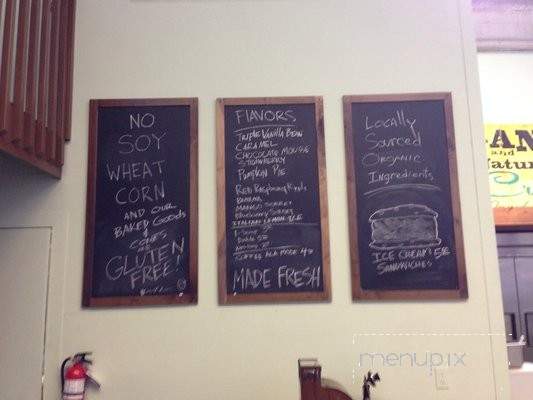 NO
SOY
WHEAT
CORN
AND OUR
BAKED GOODS
CONES
GLUTEN
FREE!
FLAVORS
TRIPLE VANILLA BEAN
CARAMEL
CHOCOLATE MOUSE
STRAWBERRY
PUMPKIN PIE
RED RASPBERRY
BANANA
MANGO SORBET
BLACKBERRY SORBET
ITALIAN LEMON ICE
MADE FRESH
Locally
Sourced
Organic
Ingredients
ICE CREAM
SANDWICHES
and
Natur
menupix